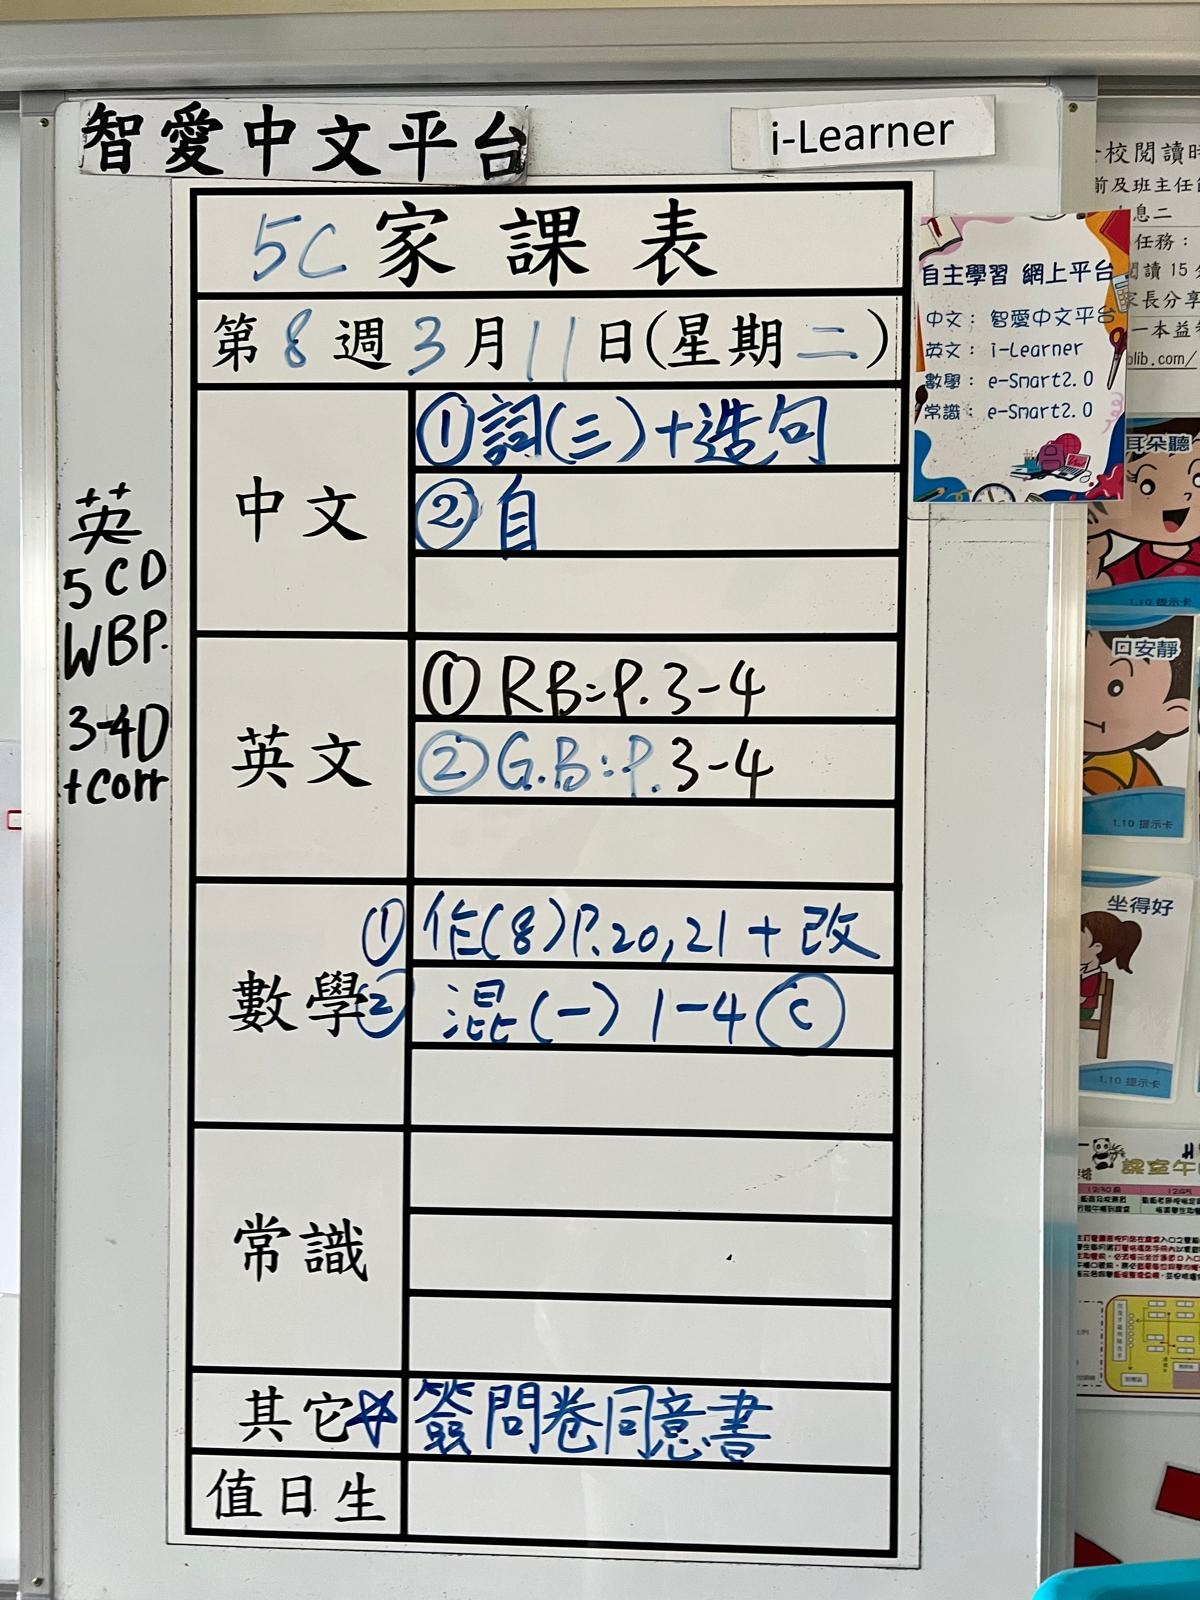 智愛中文平台
i-Learner
5C 家課表
第 8 週 3 月 11 日(星期 二)
中文
①詞(三)+造句
②自
英文
① RB:P.3-4
② G.B:P.3-4
數學
① 作(8)P.20,21+改
② 混(一) 1-4 Ⓒ
常識
其它☆ 簽問卷同意書
值日生
英
5CD
WBP.
3-4D
+corr
自主學習 網上平台
中文: 智愛中文平台
英文: i-Learner
數學: e-Smart2.0
常識: e-Smart2.0
校閱讀時
前及班主任
息二
任務:
閱讀 15
家長分享
一本益
lib.com/
耳朵聽
1.10 提示卡
口安靜
1.10 提示卡
坐得好
1.10 提示卡
課室午